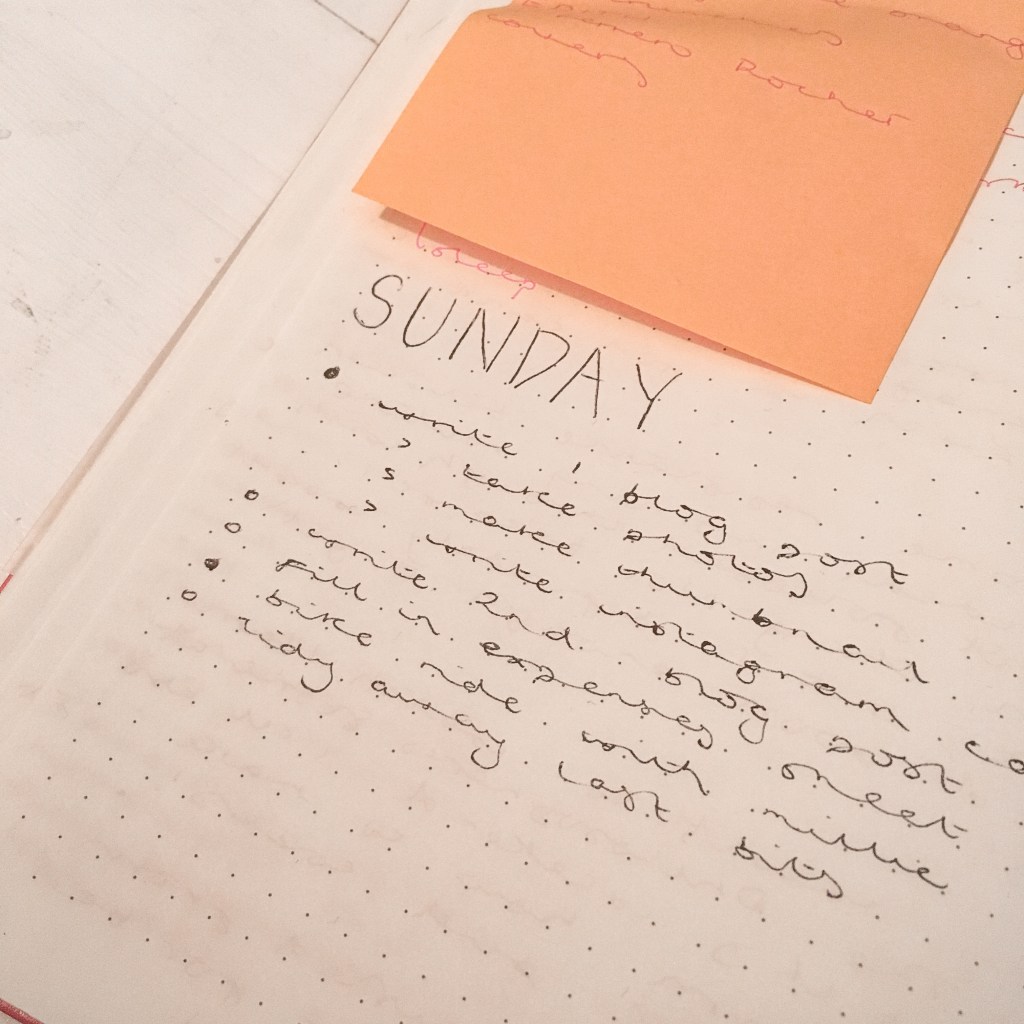 orang
Rocher
SUNDAY
write 1 blog post
> take photos
> make thumbnail
> write instagram co
write 2nd blog post
fill in expenses sheet
bike ride with millie
tidy away last bits